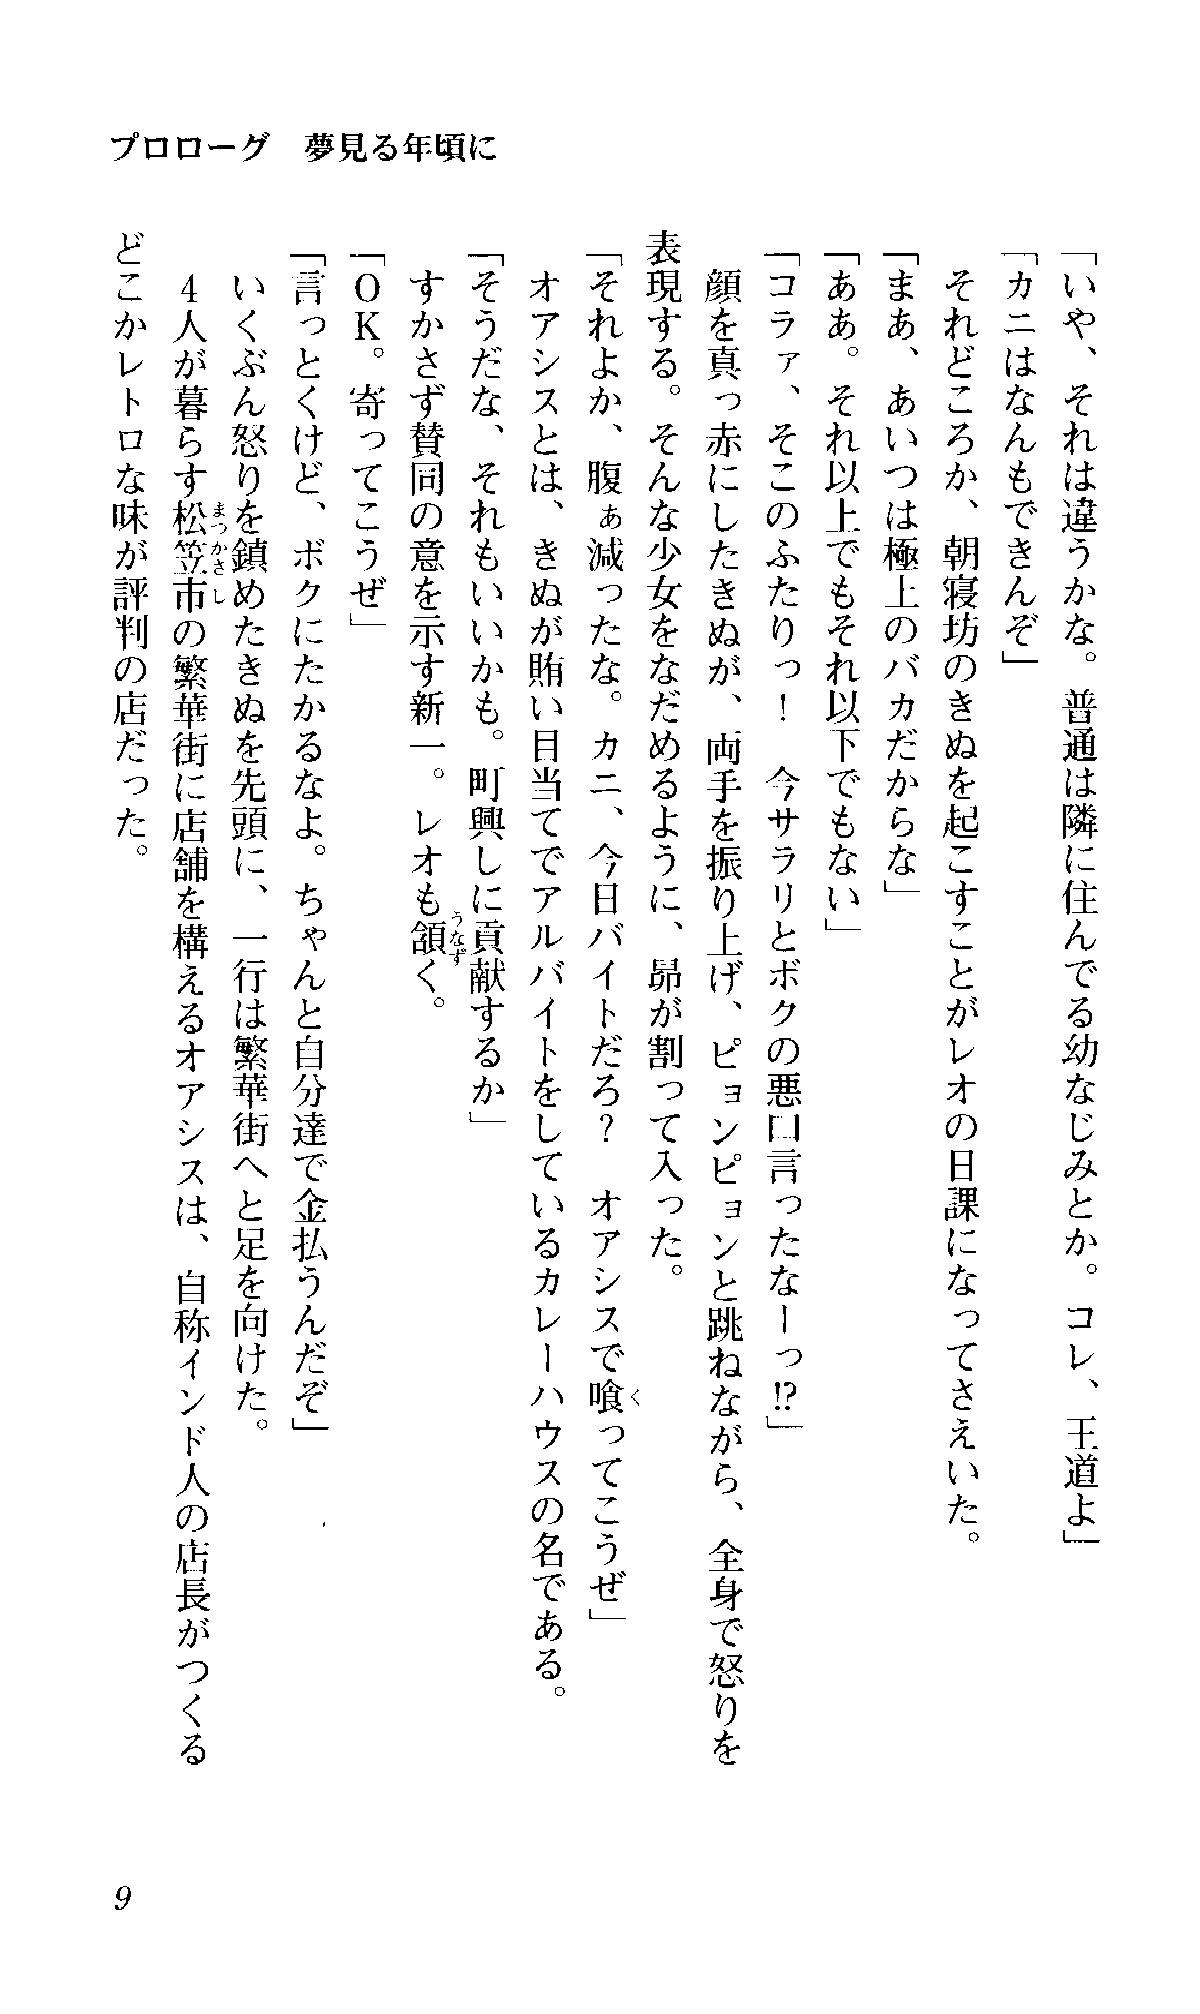 プロローグ　夢見る年頃に
「いや、それは違うかな。普通は隣に住んでる幼なじみとか。コレ、王道よ」
「カニはなんもできんぞ」
それどころか、朝寝坊のきぬを起こすことがレオの日課になってさえいた。
「まあ、あいつは極上のバカだからな」
「ああ。それ以上でもそれ以下でもない」
「コラァ、そこのふたりっ！　今サラリとボクの悪口言ったなーっ!?」
顔を真っ赤にしたきぬが、両手を振り上げ、ピョンピョンと跳ねながら、全身で怒りを
表現する。そんな少女をなだめるように、昴が割って入った。
「それよか、腹ぁ減ったな。カニ、今日バイトだろ？　オアシスで喰ってこうぜ」
オアシスとは、きぬが賄い目当てでアルバイトをしているカレーハウスの名である。
「そうだな、それもいいかも。町興しに貢献するか」
すかさず賛同の意を示す新一。レオも頷く。
「OK。寄ってこうぜ」
「言っとくけど、ボクにたかるなよ。ちゃんと自分達で金払うんだぞ」
いくぶん怒りを鎮めたきぬを先頭に、一行は繁華街へと足を向けた。
4人が暮らす松笠市の繁華街に店舗を構えるオアシスは、自称インド人の店長がつくる
どこかレトロな味が評判の店だった。
9